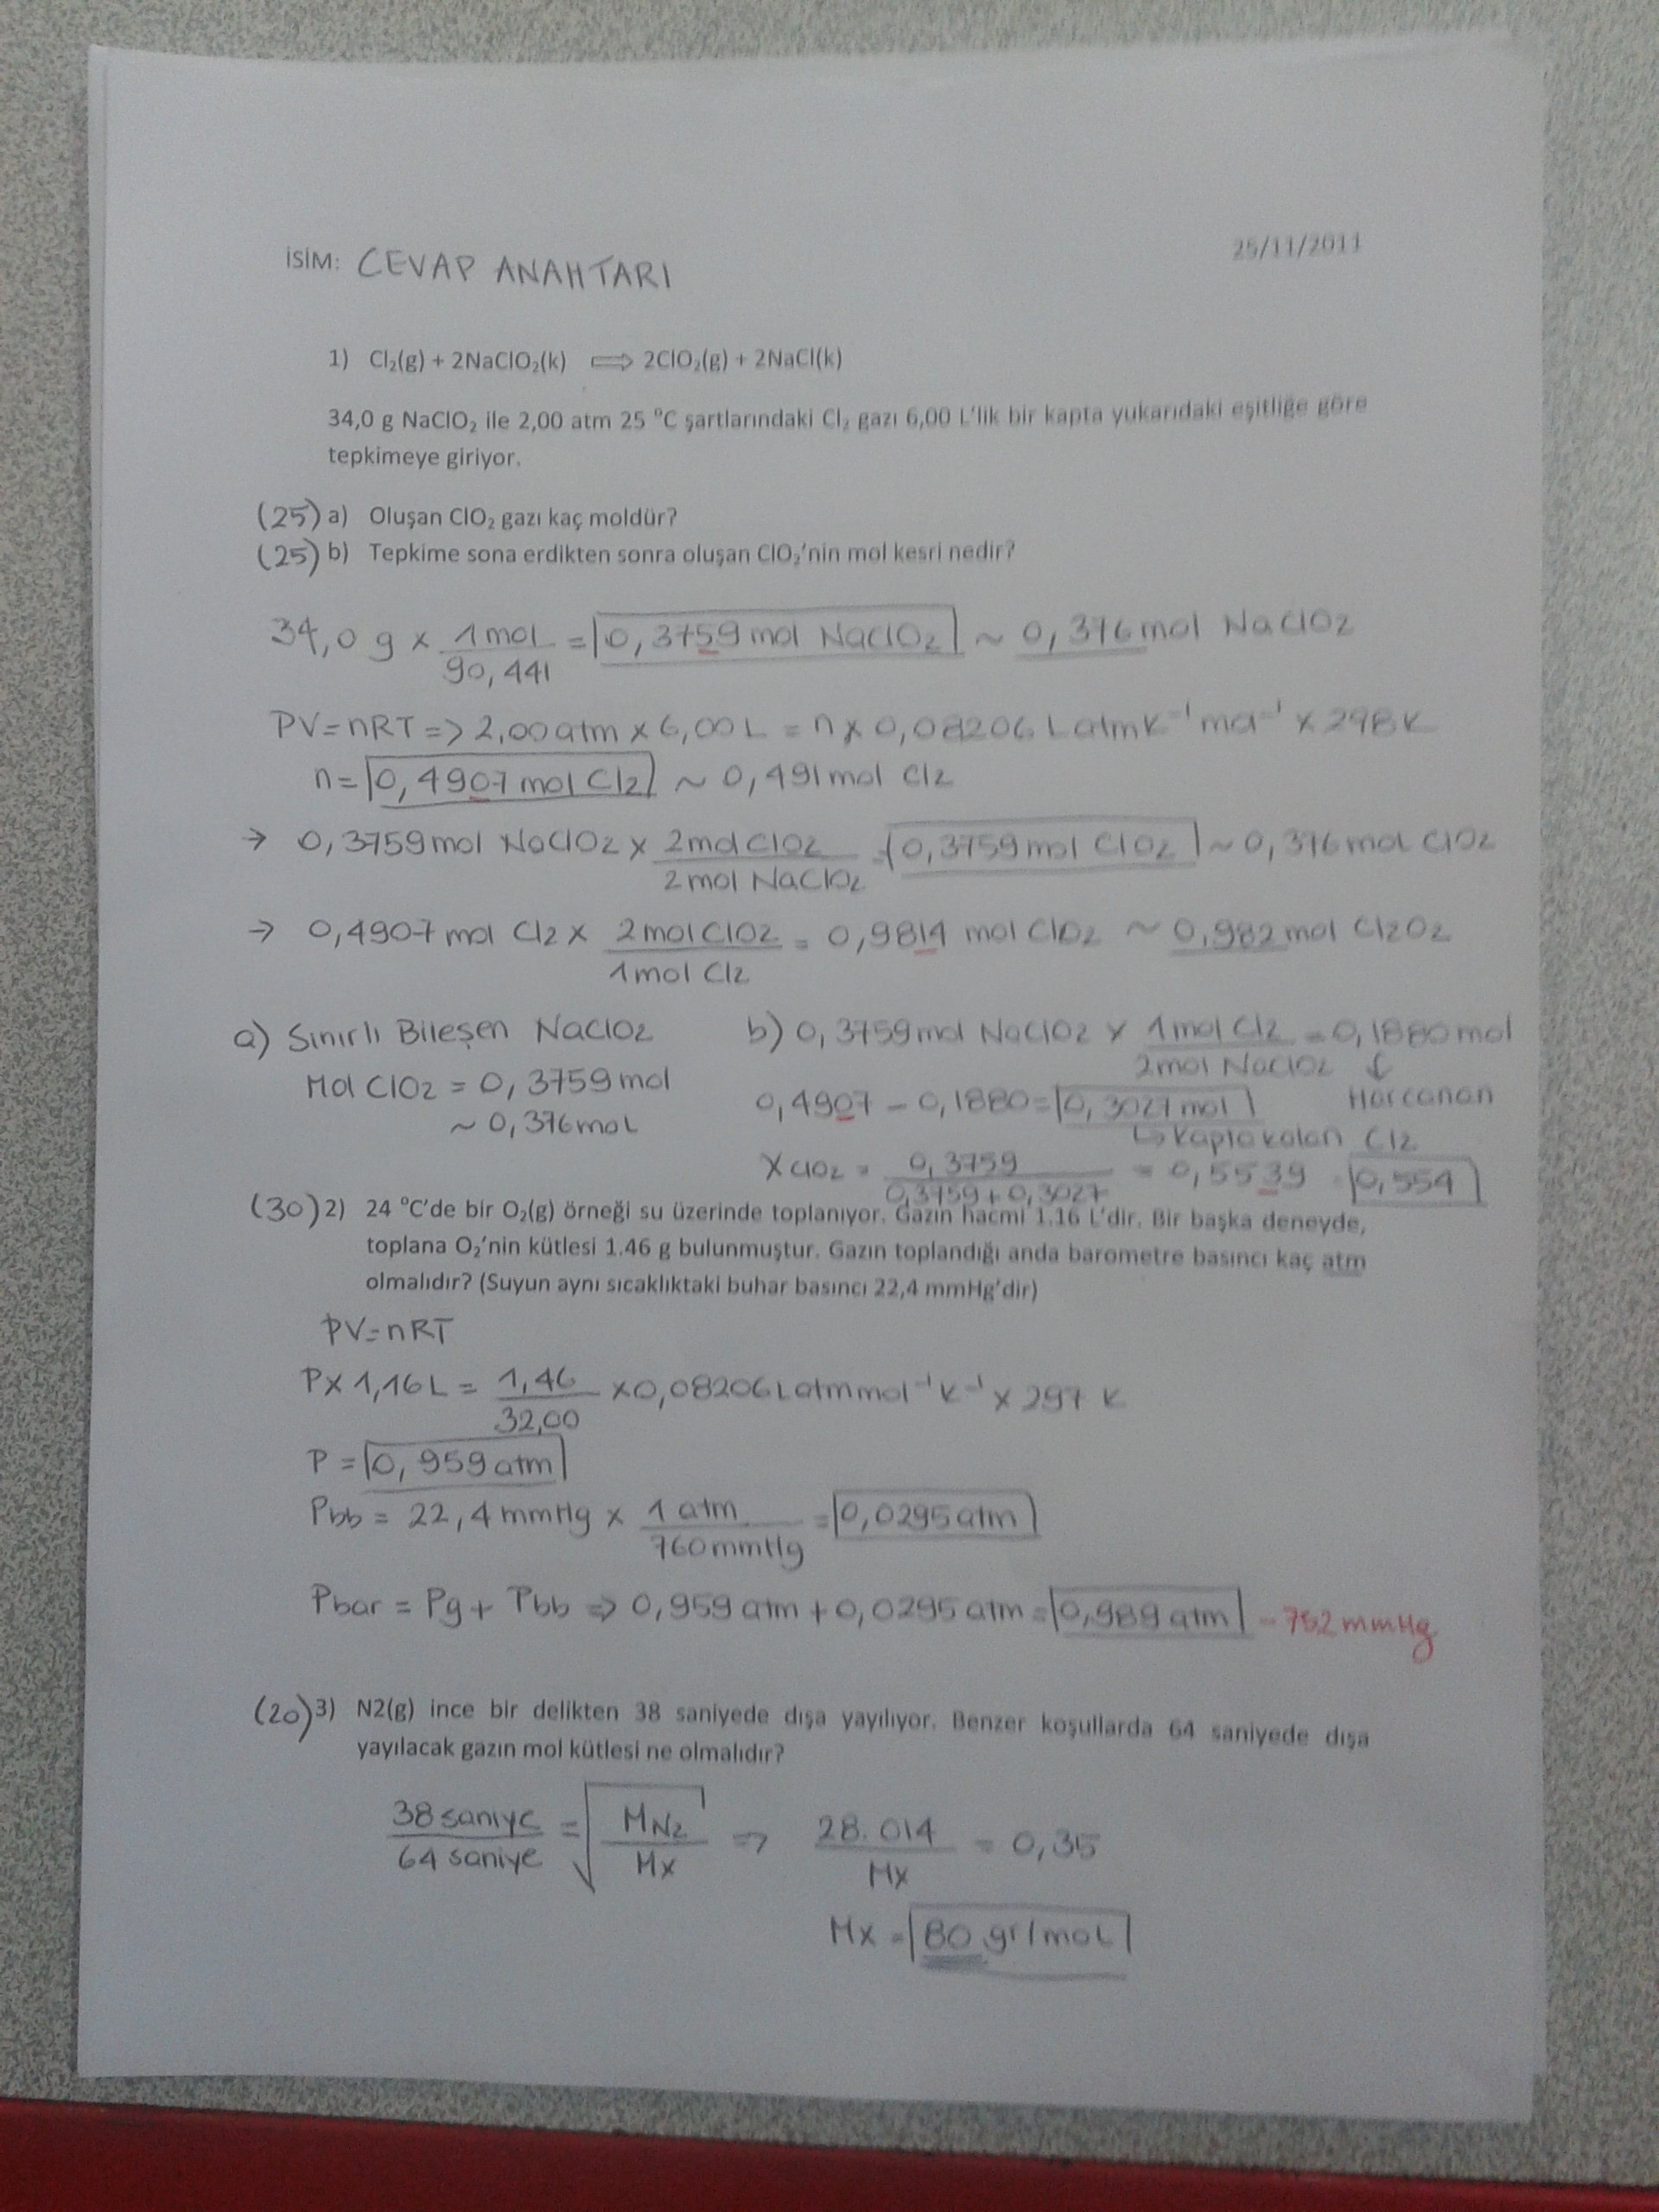 25/11/2011
İSİM: CEVAP ANAHTARI
1) Cl₂(g) + 2NaClO₂(k) ⟹ 2ClO₂(g) + 2NaCl(k)
34,0 g NaClO₂ ile 2,00 atm 25 °C şartlarındaki Cl₂ gazı 6,00 L'lik bir kapta yukarıdaki eşitliğe göre
tepkimeye giriyor.
(25) a) Oluşan ClO₂ gazı kaç moldür?
(25) b) Tepkime sona erdikten sonra oluşan ClO₂'nin mol kesri nedir?
34,0 g x 1mol / 90,441 = 0,3759 mol NaClO₂ ~ 0,376 mol NaClO₂
PV=nRT => 2,00 atm x 6,00 L = n x 0,08206 L atm K⁻¹ mol⁻¹ x 298 K
n = 0,4907 mol Cl₂ ~ 0,491 mol Cl₂
→ 0,3759 mol NaClO₂ x 2mol ClO₂ / 2mol NaClO₂ = 0,3759 mol ClO₂ ~ 0,376 mol ClO₂
→ 0,4907 mol Cl₂ x 2mol ClO₂ / 1mol Cl₂ = 0,9814 mol ClO₂ ~ 0,982 mol Cl₂O₂
a) Sınırlı Bileşen NaClO₂
Mol ClO₂ = 0,3759 mol
~ 0,376 mol
b) 0,3759 mol NaClO₂ x 1mol Cl₂ / 2mol NaClO₂ = 0,1880 mol
↓ Harcanan
0,4907 – 0,1880 = 0,3027 mol
↳ Kapta kalan Cl₂
XClO₂ = 0,3759 / 0,3759 + 0,3027 = 0,5539 0,554
(30) 2) 24 °C'de bir O₂(g) örneği su üzerinde toplanıyor. Gazın hacmi 1.16 L'dir. Bir başka deneyde,
toplana O₂'nin kütlesi 1.46 g bulunmuştur. Gazın toplandığı anda barometre basıncı kaç atm
olmalıdır? (Suyun aynı sıcaklıktaki buhar basıncı 22,4 mmHg'dir)
PV=nRT
P x 1,16 L = 1,46 / 32,00 x 0,08206 L atm mol⁻¹ K⁻¹ x 297 K
P = 0,959 atm
Pbb = 22,4 mmHg x 1 atm / 760 mmHg = 0,0295 atm
Pbar = Pg + Pbb => 0,959 atm + 0,0295 atm = 0,989 atm – 752 mmHg
(20) 3) N2(g) ince bir delikten 38 saniyede dışa yayılıyor. Benzer koşullarda 64 saniyede dışa
yayılacak gazın mol kütlesi ne olmalıdır?
38 saniye / 64 saniye = √ MN₂ / Mx => 28.014 / Mx = 0,35
Mx = 80 gr/mol